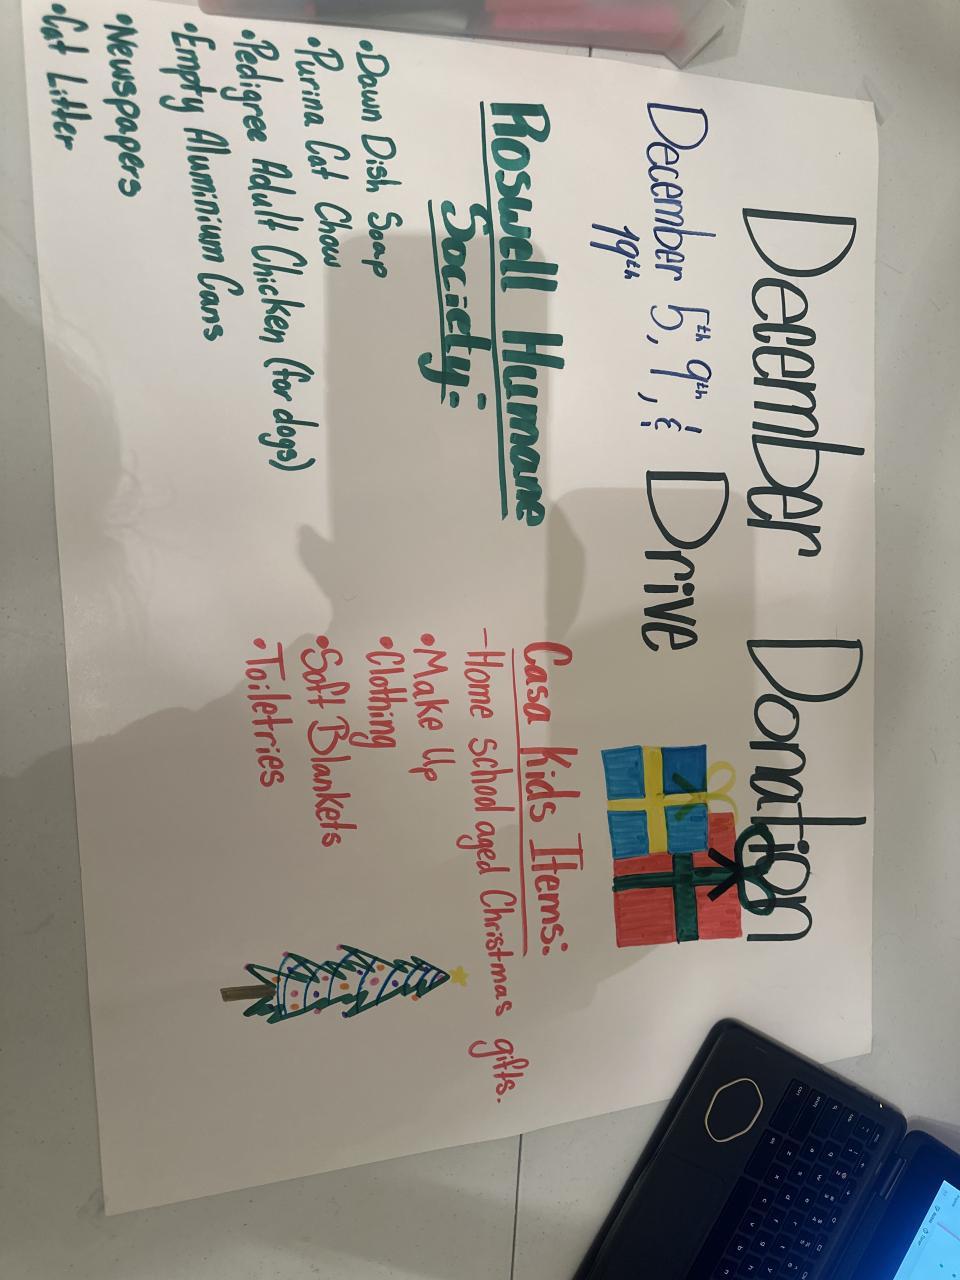 December Donation
Drive
December 5th, 9th, &
19th
Roswell Humane
Society:
•Dawn Dish Soap
•Purina Cat Chow
•Pedigree Adult Chicken (for dogs)
•Empty Aluminium Cans
•Newspapers
•Cat Litter
Casa Kids Items:
-Home school aged Christmas gifts.
•Make Up
•Clothing
•Soft Blankets
•Toiletries